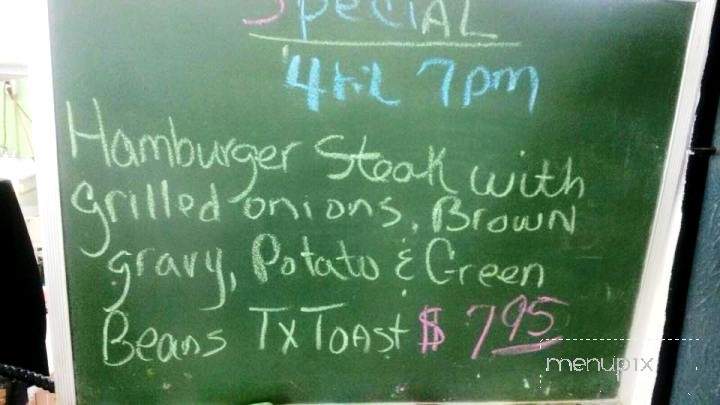 SpeciAL
4 til 7pm
Hamburger Steak with
grilled onions, Brown
gravy, Potato & Green
Beans Tx Toast $ 795
menupix